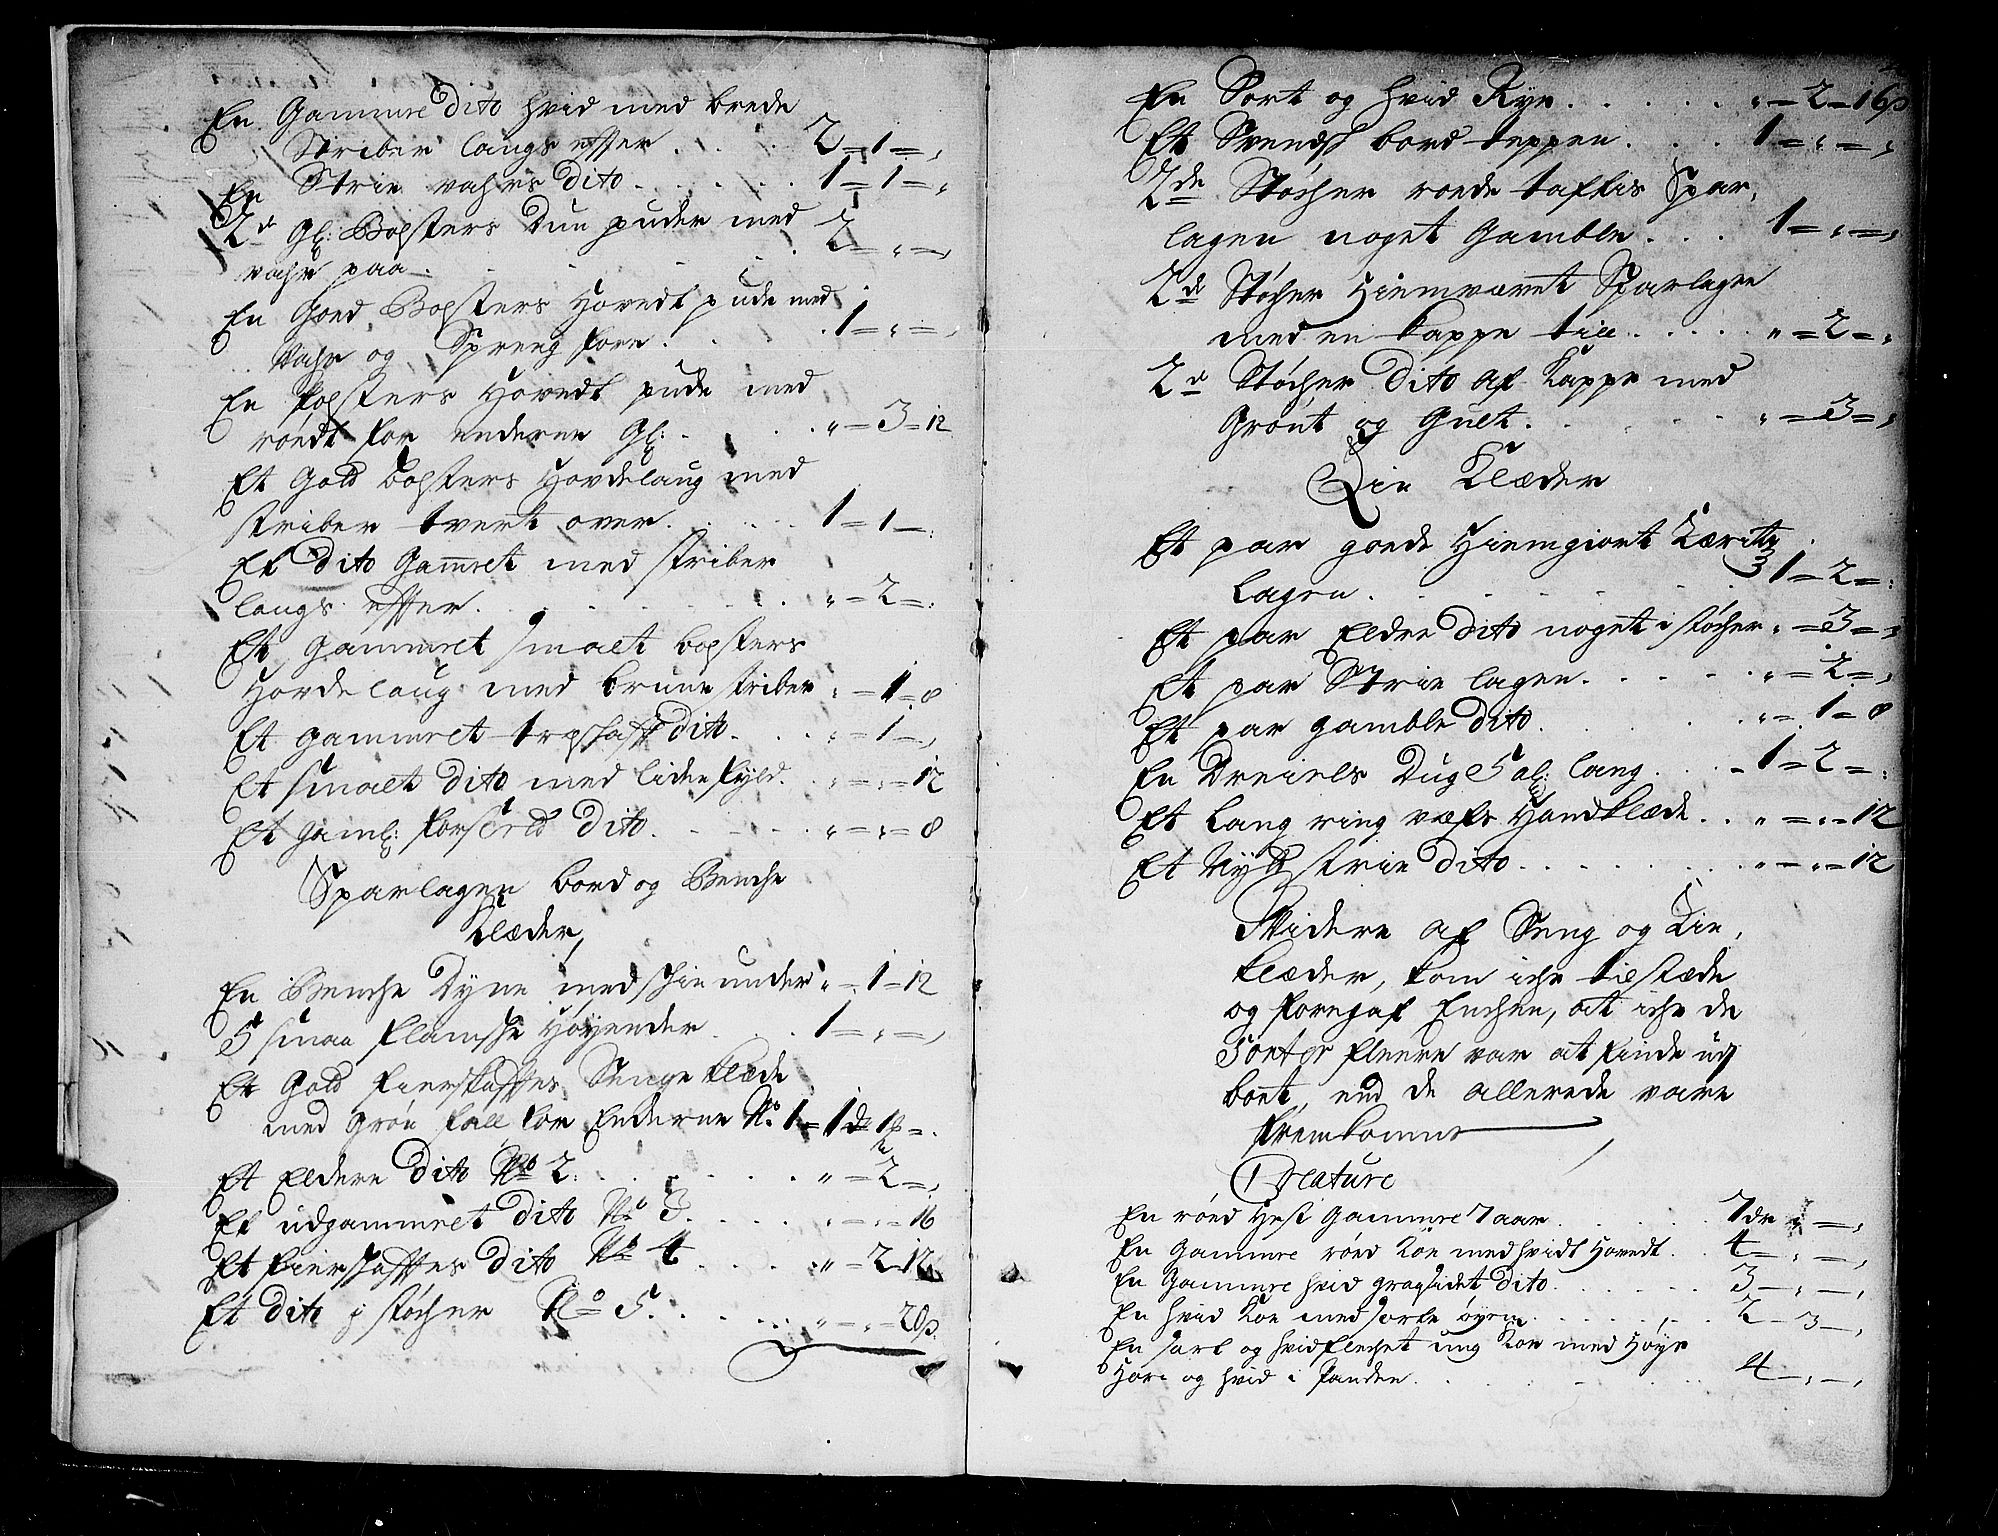 En Gammel Dito hvid med brede
Striber langs effter . . . 2 = 1 = ,
En Strie vahrs Dito . . . . . 1 = 1 = ,
2de Gl: Bolsters Dun puder med
vahr paa . . . . . 2 = , = ,
En Goed Bolsters Hovedt pude med
Vahr og Spreng fore . . . 1 = , = ,
En Bolsters Hovedt pude med
rödt for enderne Gl: . . . . " = 3 = 12
Et Gold bolsters Hovdelaug med
striber tvert over . . . . . 1 = 1 = ,
Et Dito Gammelt med striber
langs effter . . . . . " = 2 = ,
Et gammelt smalt bolsters
Hovdelaug med brune striber " = 1 = 8
Et gammelt treskafft dito . . . " = 1 = ,
Et smalt Dito med liden fyld . " = " = 12
Et gaml: forslidt Dito . . . . " = " = 8
Sparlagen bord og Benche
Klæder,
En Benche Dyne med skin under " = 1 = 12
5 smaa flamske Höyender . . . 1 = , = ,
Et Gold fierskafftes Senge klæde
med grön fall for Enderne No. 1 = 1 dr 1 = ,
Et Eldere Dito No 2 . . . . . " = 2 = ,
Et udgammelt dito No 3 . . . . " = " = 16
Et fierskafftes dito No 4 . . . . " = 2 = 12
Et dito j stöcher No 5 . . . . " = " = 20 s.
En Sort og hvid Rye . . . . . . " = 2 = 16 s
Et Svendsk bord teppen . . . 1 = " = ,
2de Stöcher roede tafftes Spar-
lagen noget Gamble . . . 1 = , = ,
2de Stöcher Hiemvævet Sparlagen
med en kappe till . . . . . " = 2 = ,
2de Stöcher Dito af Kappe med
Grönt og Guelt . . . . . " = 3 = ,
Lin Klæder
Et par goede Hiemgiort Lærits
Lagen . . . . . 1 = 2 = ,
Et par Eldre Dito noget i stöcher " = 3 = ,
Et par Strie lagen . . . . . " = 2 = ,
Et par gamble Dito . . . . . " = 1 = 8
En Dreiels Dug 5 al: lang . . . 1 = 2 = ,
Et Lang ring væfs Handklæde . . " = " = 12
Et Nytt strie dito . . . . . . . " = " = 12
Videre af Seng og Lin-
klæder, kom iche tilstæde
og foregaf Enchen, at iche de
Sorter fleere var at finde udj
boet, end de allerede vare
fremkomne
Creature
En röd Hest Gammel 7 aar . . . . . 7 dr " = ,
En Gammel röd Koe med hvidt Hovedt . . 4 = , = ,
En Gammel hvid graasidet dito . . . . . . 3 = , = ,
En hvid Koe med sorte öyern . . . . . 2 = 3 = ,
En sort og hvidflechet ung Koe med Höye
Horn og hvid i Panden . . . . . 4 = , = ,